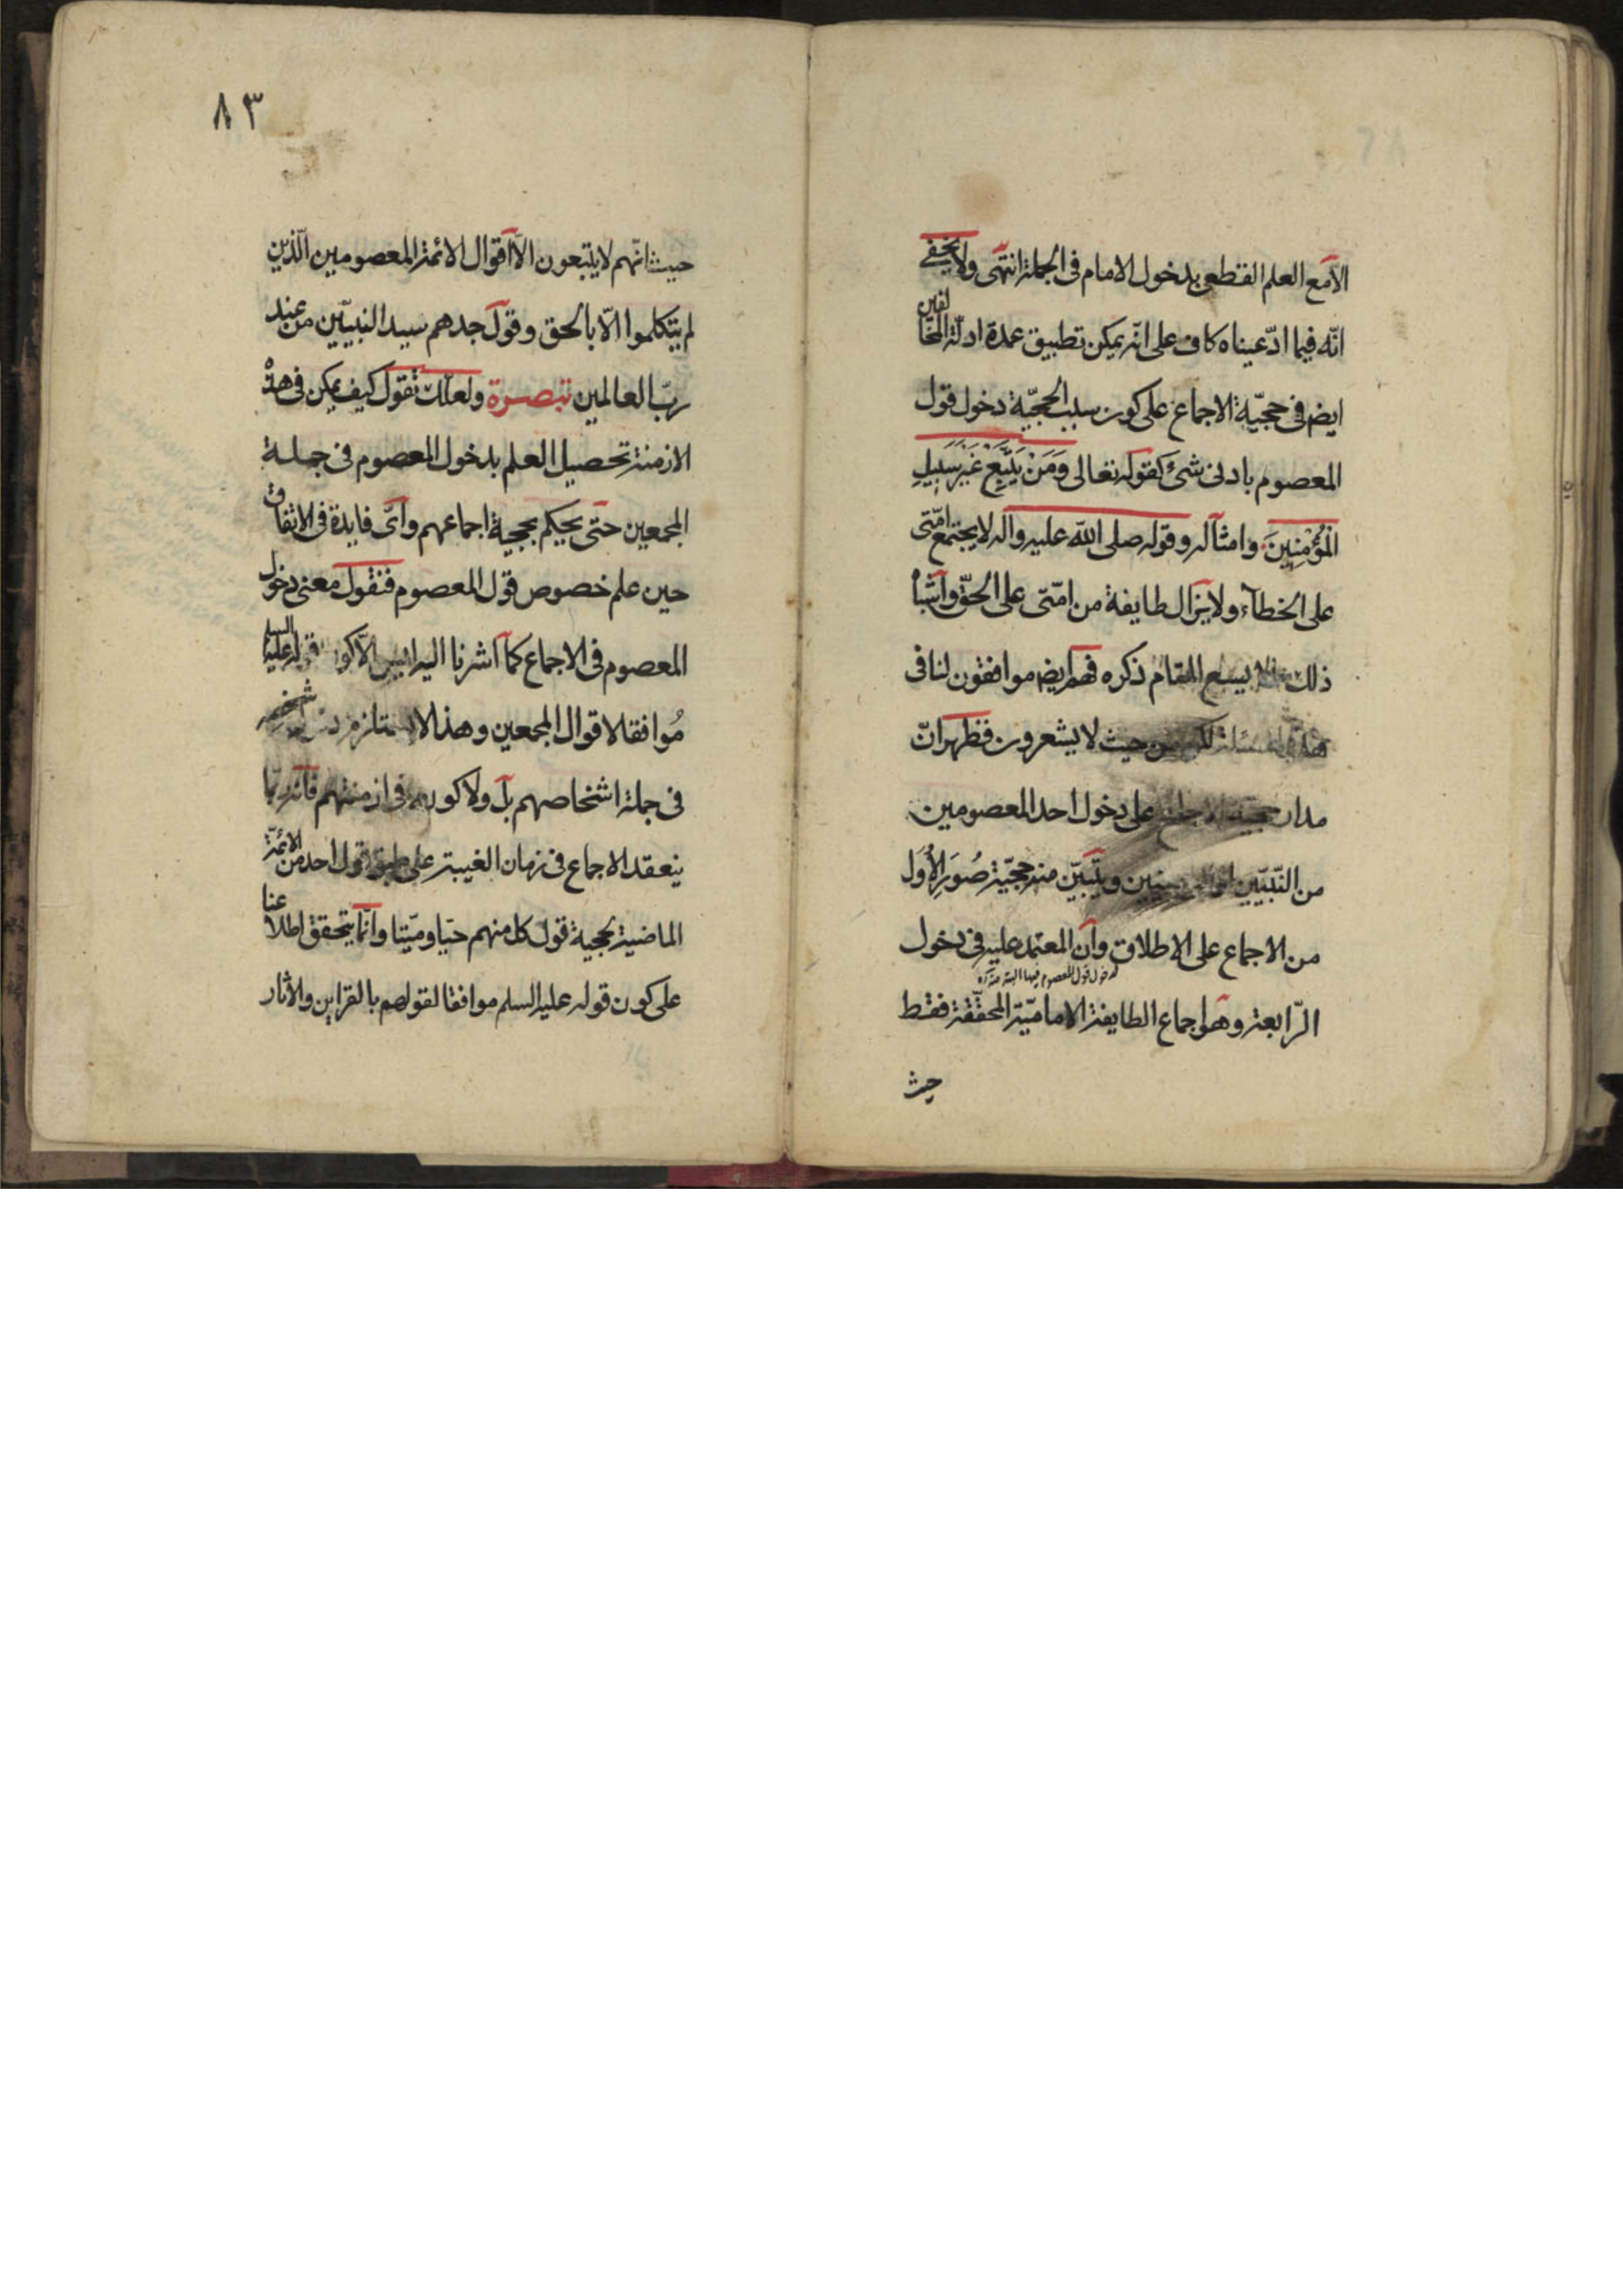 الا مع العلم القطعى بدخول الامام فى الجملة انتهى ولا يخفى
انّه فيما ادّعيناه كاف على انّه يمكن تطبيق عمدة ادلّة المخالفين
ايض فى حجيّة الاجماع على كون سبب الحجيّة دخول قول
المعصوم بادنى شئ كقوله تعالى وَمَنْ يَتَّبِعْ غَيْرَ سَبِيلِ
الْمُؤْمِنِينَ وامثاله وقوله صلى الله عليه واله لا يجتمع امّتى
على الخطآء ولا يزال طايفة من امّتى على الحقّ واشباه
ذلك يسع المقام ذكره فهم ايض موافقون لنا فى
هذه المسئلة لكن من حيث لا يشعرون فظهر انّ
مدار حجيّة الاجماع على دخول احد المعصومين
من النّبيّين ويتبيّن منه حجيّة صُوَرِ الأُوَل
من الاجماع على الاطلاق وان المعتمد عليه فى دخول
لدخول قول المعصوم فيها البتة
الرّابعة وهو اجماع الطايفة الاماميّة المحقّقة فقط
حيث
٨٣
حيث انّهم لا يتبعون الّا اقوال الائمة المعصومين الّذين
لم يتكلموا الّا بالحق وقول جدهم سيد النبيّين من عند
ربّ العالمين تبصرة ولعلّك تقول كيف يمكن فى هذه
الازمنة تحصيل العلم بدخول المعصوم فى جملة
المجمعين حتى يحكم بحجية اجماعهم واىّ فايدة فى الاتفاق
حين علم خصوص قول المعصوم فنقول معنى دخول
المعصوم فى الاجماع كما اشرنا اليه ليس الّا كون قوله عليه السلم
مُوافقا لاقوال المجمعين وهذا لا يستلزم شخصه
فى جملة اشخاصهم بل ولا كونه فى ازمنتهم فانه ربّما
ينعقد الاجماع فى زمان الغيبة على طبق قول احد من الائمّة
الماضية بحجية قول كل منهم حيّا وميّتا وانّما يتحقق اطلاعنا
على كون قوله عليه السلم موافقا لقولهم بالقراين والاثار